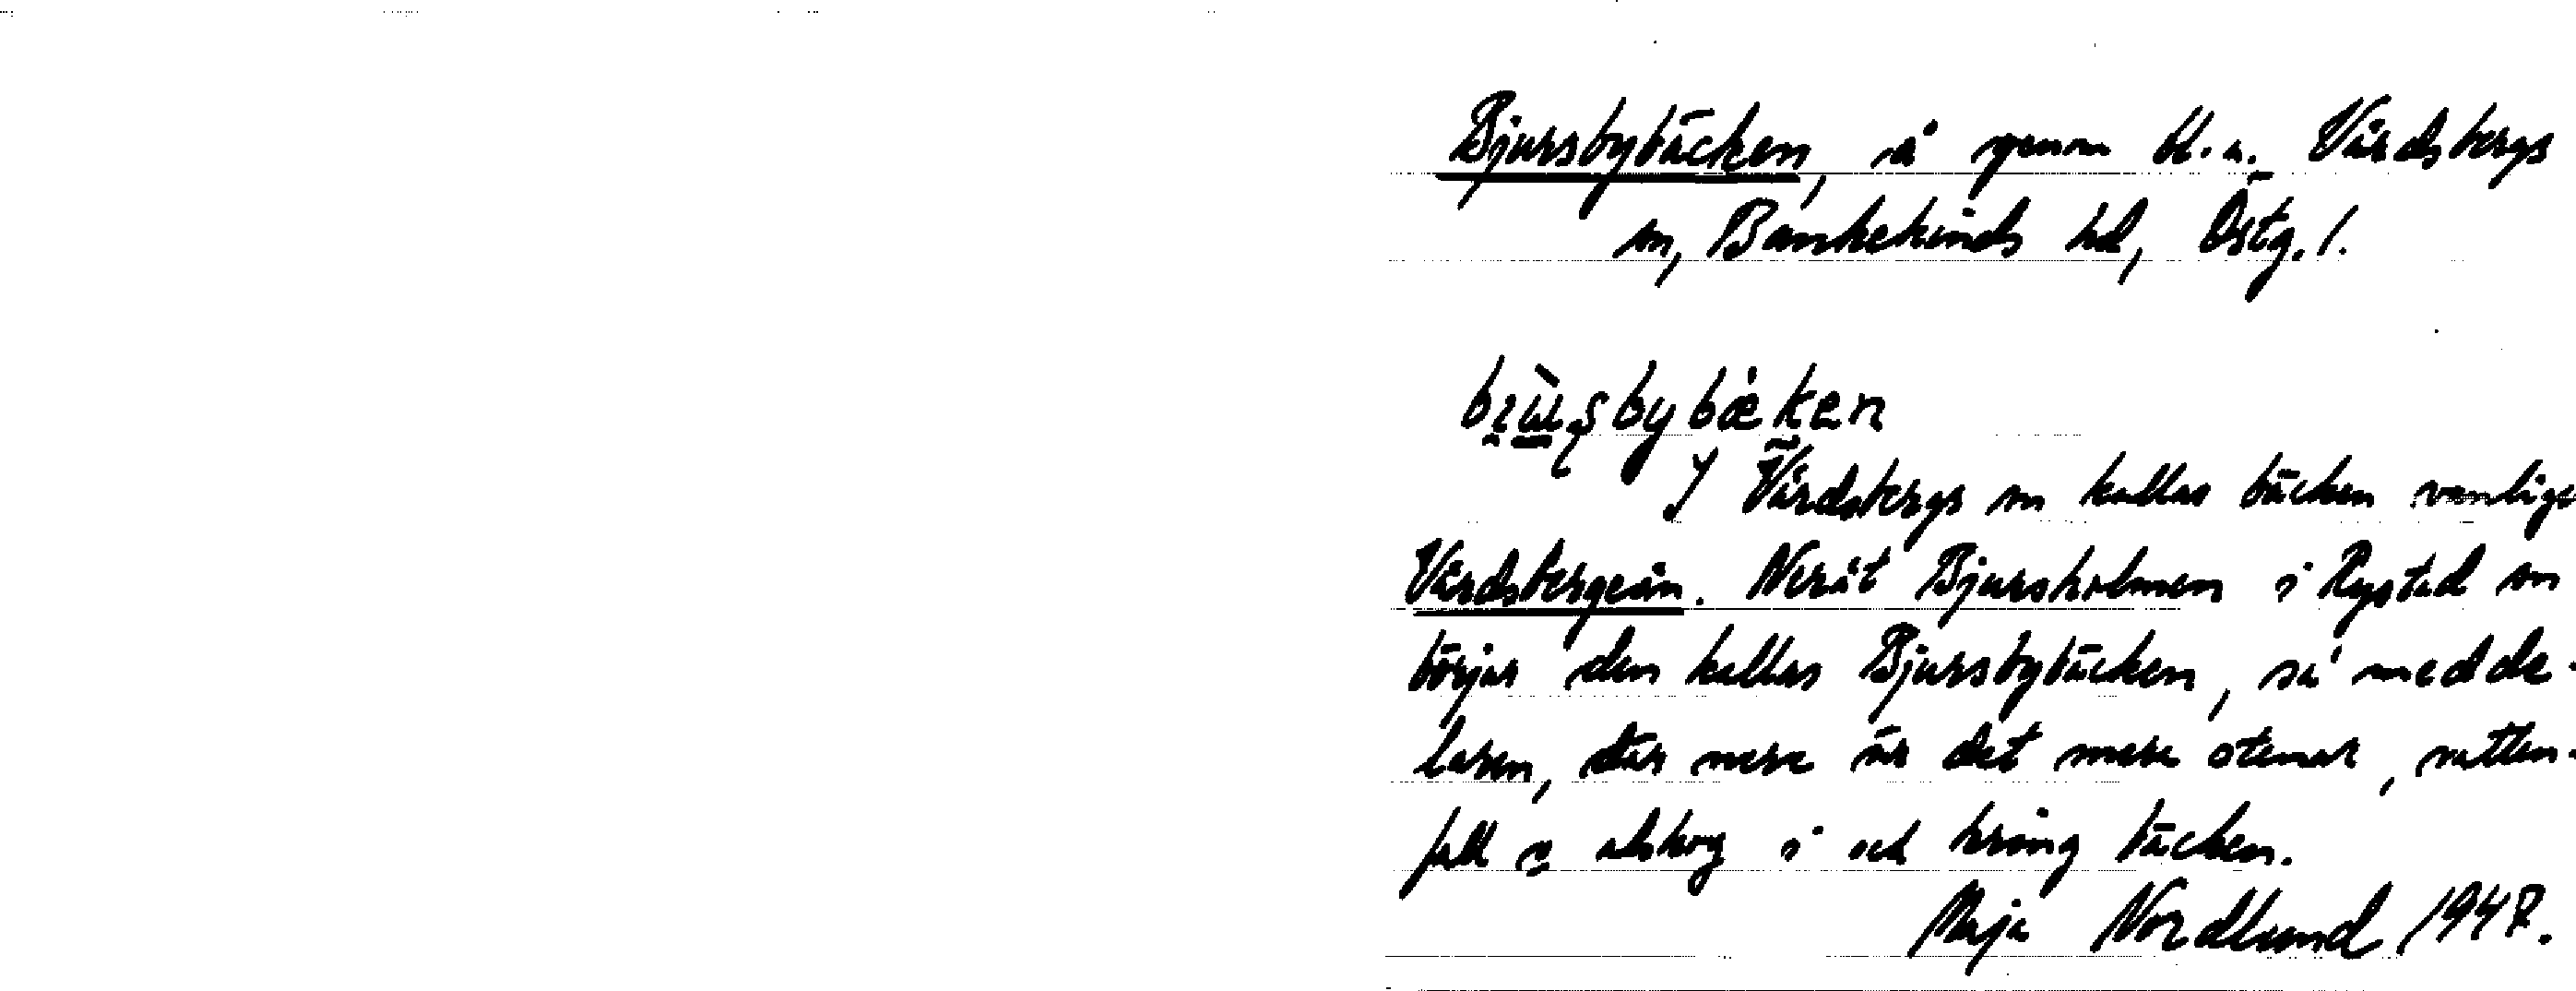 Bjursbybäcken, å genom bl.a. Vårdsbergs
sn, Bankekinds hd, Östg. l.
I Vårdsbergs sn kallas bäcken vanlige
Vårdsbergeån. Neråt Bjursholmen i Rystad sn
börjar den kallas Bjursbybäcken, sa' medde-
laren, där nere är det mera stenar, vatten-
fall o alskog i och kring bäcken.
Maja Nordlund 1947.